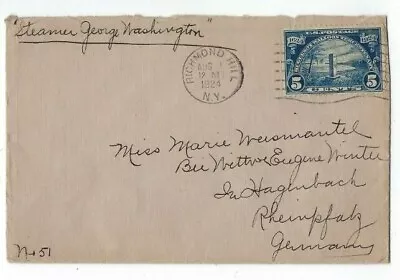 "Steamer George Washington"
RICHMOND HILL
AUG
12 M
1924
N.Y.
U.S. POSTAGE
1624 1924
5 CENTS 5
Miss Marie Weismantel
Bei Wittwe Eugene Winter
In Hagenbach
Rheinpfalz
Germany
No 51